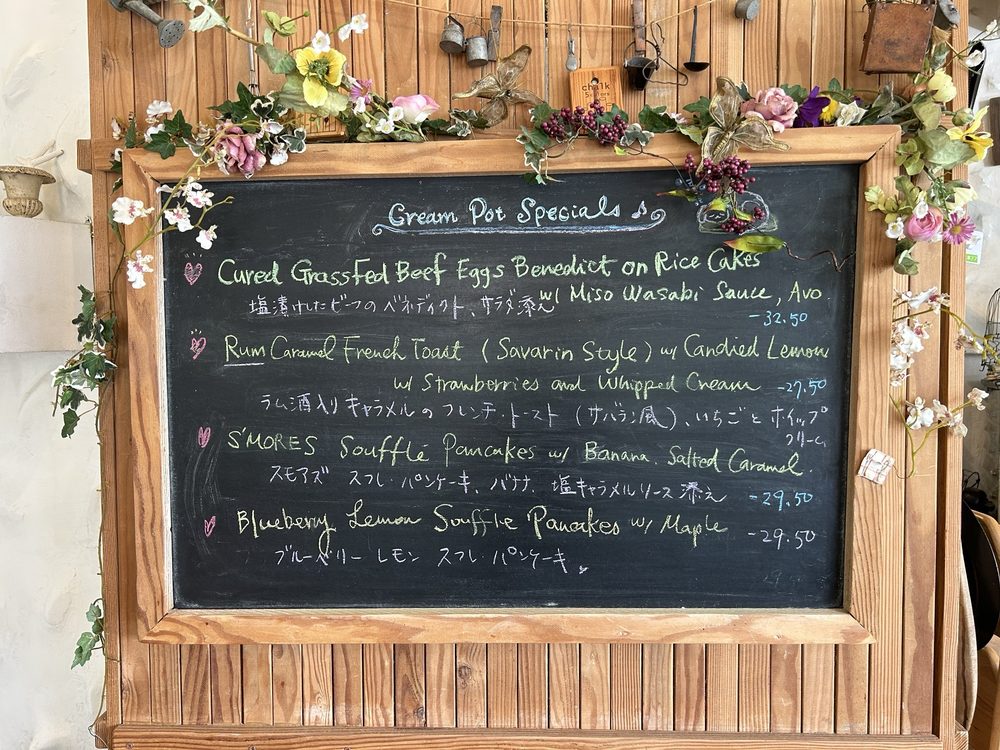 chalk
Cream Pot Specials ♪
Cured Grassfed Beef Eggs Benedict on Rice Cakes
w/ Miso Wasabi Sauce, Avo
塩漬けしたビーフのベネディクト、サラダ添え
-32.50
Rum Caramel French Toast (Savarin Style) w/ Candied Lemon
w/ Strawberries and Whipped Cream -27.50
ラム酒入りキャラメルのフレンチ・トースト (サバラン風)、いちごとホイップ
クリーム
S'MORES Soufflé Pancakes w/ Banana, Salted Caramel.
スモアズ スフレ・パンケーキ、バナナ、塩キャラメルソース添え -29.50
Blueberry Lemon Souffle Pancakes w/ Maple -29.50
ブルーベリー レモン スフレ・パンケーキ。